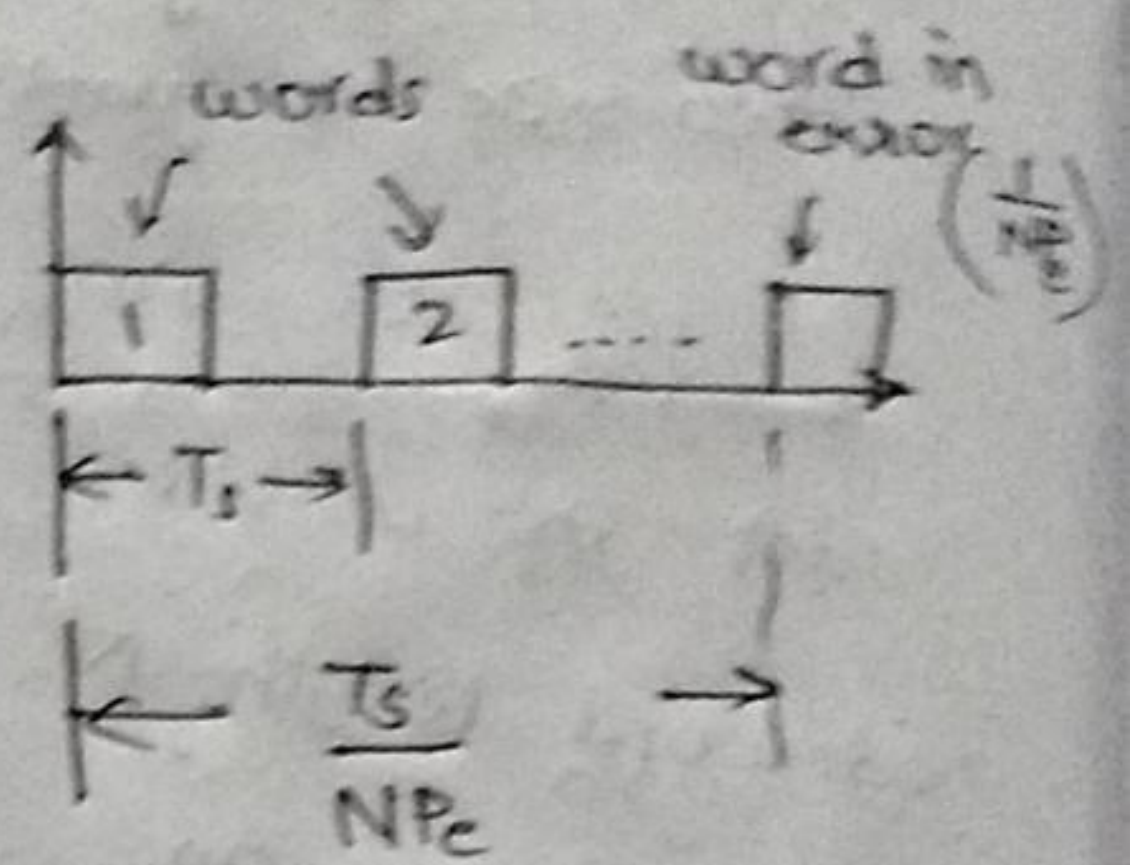 words
word in
error
(1/NPe)
1
2
Ts
Ts
NPe